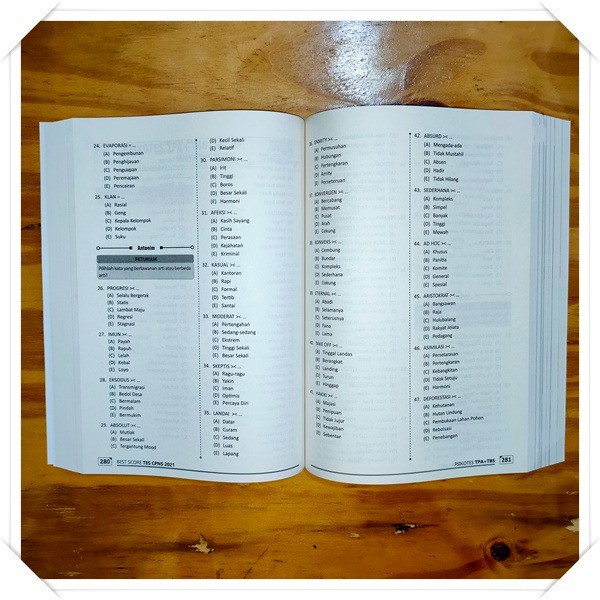 24. EVAPORASI = ...
(A) Pengembunan
(B) Penghijauan
(C) Penguapan
(D) Peremajaan
(E) Pencairan
25. KLAN = ...
(A) Rasial
(B) Geng
(C) Kepala Kelompok
(D) Kelompok
(E) Suku
Antonim
PETUNJUK
Pilihlah kata yang berlawanan arti atau berbeda
arti!
26. PROGRESI >< ...
(A) Selalu Bergerak
(B) Statis
(C) Lambat Maju
(D) Regresi
(E) Stagnasi
27. IMUN >< ...
(A) Payah
(B) Rapuh
(C) Lelah
(D) Kebal
(E) Loyo
28. EKSODUS >< ...
(A) Transmigrasi
(B) Bedol Desa
(C) Bermalam
(D) Pindah
(E) Bermukim
29. ABSOLUT >< ...
(A) Mutlak
(B) Besar Sekali
(C) Tergantung Mood
(D) Kecil Sekali
(E) Relatif
30. PARSIMONI >< ...
(A) Irit
(B) Tinggi
(C) Boros
(D) Besar Sekali
(E) Harmoni
31. AFEKSI >< ...
(A) Kasih Sayang
(B) Cinta
(C) Perasaan
(D) Kejahatan
(E) Kriminal
32. KASUAL >< ...
(A) Kantoran
(B) Rapi
(C) Formal
(D) Tertib
(E) Santai
33. MODERAT >< ...
(A) Pertengahan
(B) Sedang-sedang
(C) Ekstrem
(D) Tinggi Sekali
(E) Besar Sekali
34. SKEPTIS >< ...
(A) Ragu-ragu
(B) Yakin
(C) Iman
(D) Optimis
(E) Percaya Diri
35. LANDAI >< ...
(A) Datar
(B) Curam
(C) Sedang
(D) Luas
(E) Lapang
280 BEST SCORE TES CPNS 2021
ENMITY >< ...
(A) Permusuhan
(B) Hubungan
(C) Pertengkaran
(D) Amity
(E) Perseteruan
KONVERGEN >< ...
(A) Bercabang
(B) Memusat
(C) Pusat
(D) Arah
(E) Cekung
KONVEKS >< ...
(A) Cembung
(B) Bundar
(C) Kompleks
(D) Sederhana
(E) Cekung
ETERNAL >< ...
(A) Abadi
(B) Selamanya
(C) Seterusnya
(D) Fana
(E) Lama
TAKE OFF >< ...
(A) Tinggal Landas
(B) Berangkat
(C) Landing
(D) Turun
(E) Hinggap
HAKIKI >< ...
(A) Majasi
(B) Penipuan
(C) Tidak Jujur
(D) Kewajiban
(E) Sebentar
42. ABSURD >< ...
(A) Mengada-ada
(B) Tidak Mustahil
(C) Absen
(D) Hadir
(E) Tidak Hilang
43. SEDERHANA >< ...
(A) Kompleks
(B) Simpel
(C) Banyak
(D) Tinggi
(E) Mewah
44. AD HOC >< ...
(A) Khusus
(B) Panitia
(C) Komite
(D) General
(E) Spesial
45. ARISTOKRAT >< ...
(A) Bangsawan
(B) Raja
(C) Hulubalang
(D) Rakyat Jelata
(E) Pedagang
46. ASIMILASI >< ...
(A) Penselarasan
(B) Pertengkaran
(C) Kebangkitan
(D) Tidak Setuju
(E) Harmoni
47. DEFORESTASI >< ...
(A) Kehutanan
(B) Hutan Lindung
(C) Pembukaan Lahan Pohon
(D) Reboisasi
(E) Penebangan
PSIKOTES TPA+TBS 281